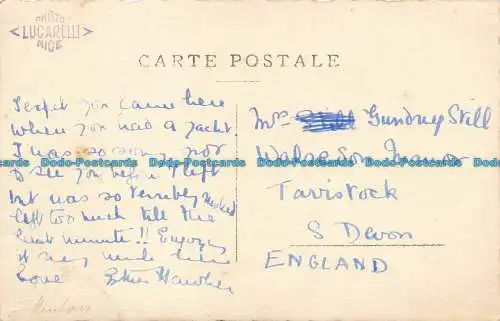 PHOTO
LUCARELLI
NICE
CARTE POSTALE
I expect you came here
when you had a yacht.
I was so sorry not
to see you before I left
but was so terribly rushed
left too much till the
last minute!! Enjoying
it very much here
Love
Mrs Gundry Still
Tavistock
S Devon
ENGLAND
Menton
Dodo-Postcards Dodo-Postcards Dodo-Postcards Dodo-Postcards